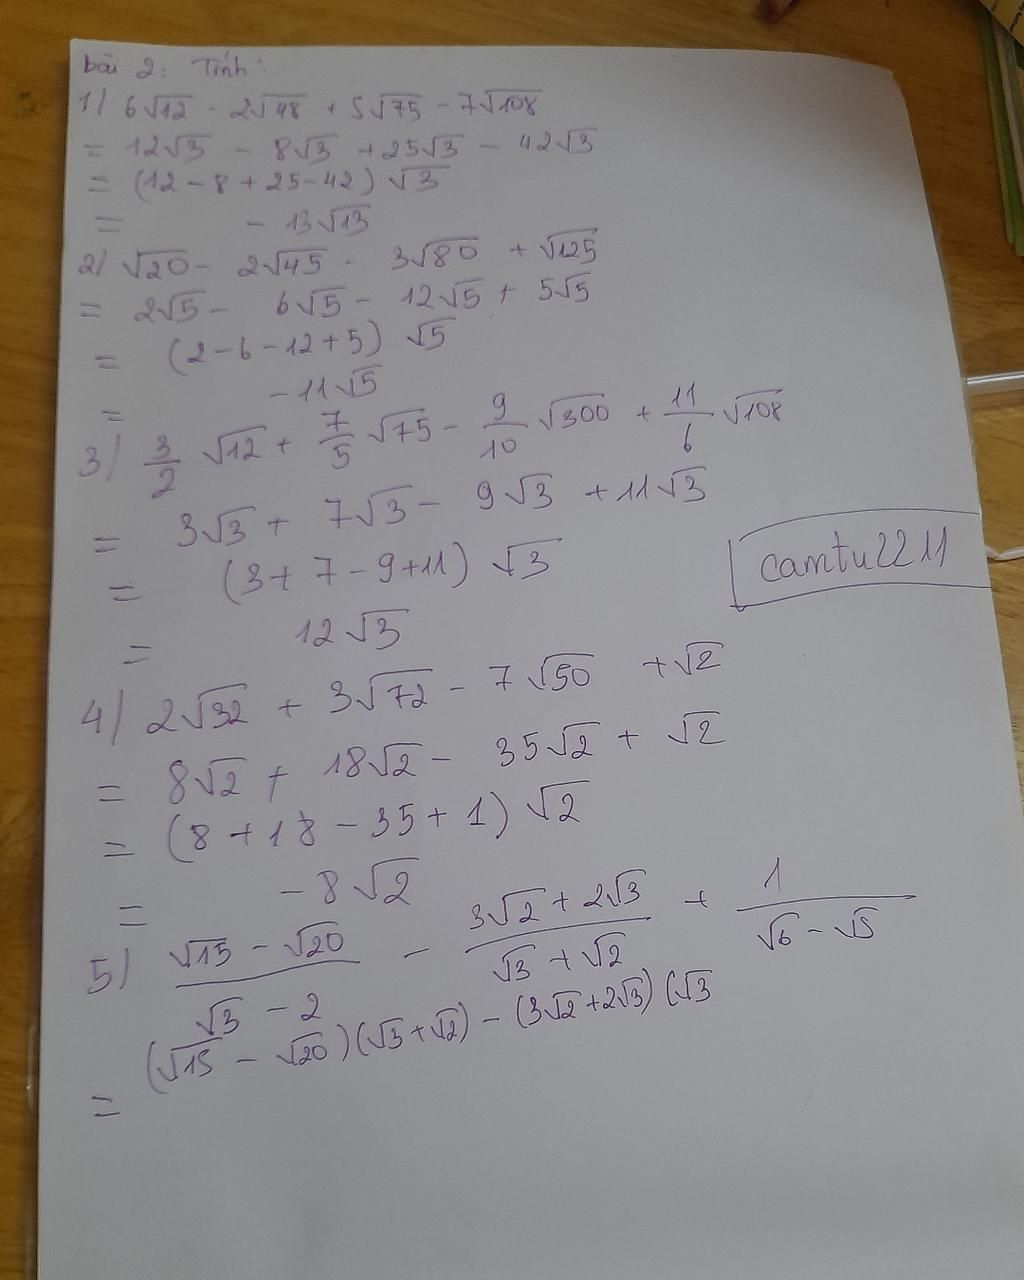 bài 2: Tính:
1) 6√12 - 2√48 + 5√75 - 7√108
= 12√3 - 8√3 + 25√3 - 42√3
= (12 - 8 + 25 - 42) √3
= - 13√13
2) √20 - 2√45 - 3√80 + √125
= 2√5 - 6√5 - 12√5 + 5√5
= (2 - 6 - 12 + 5) √5
= - 11√5
3) 3/2 √12 + 7/5 √75 - 9/10 √300 + 11/6 √108
= 3√3 + 7√3 - 9√3 + 11√3
= (3 + 7 - 9 + 11) √3
= 12√3
camtu2211
4) 2√32 + 3√72 - 7√50 + √2
= 8√2 + 18√2 - 35√2 + √2
= (8 + 18 - 35 + 1) √2
= - 8√2
5) (√15 - √20)/(√3 - 2) - (3√2 + 2√3)/(√3 + √2) + 1/(√6 - √5)
= (√15 - √20)(√3 + √2) - (3√2 + 2√3)(√3